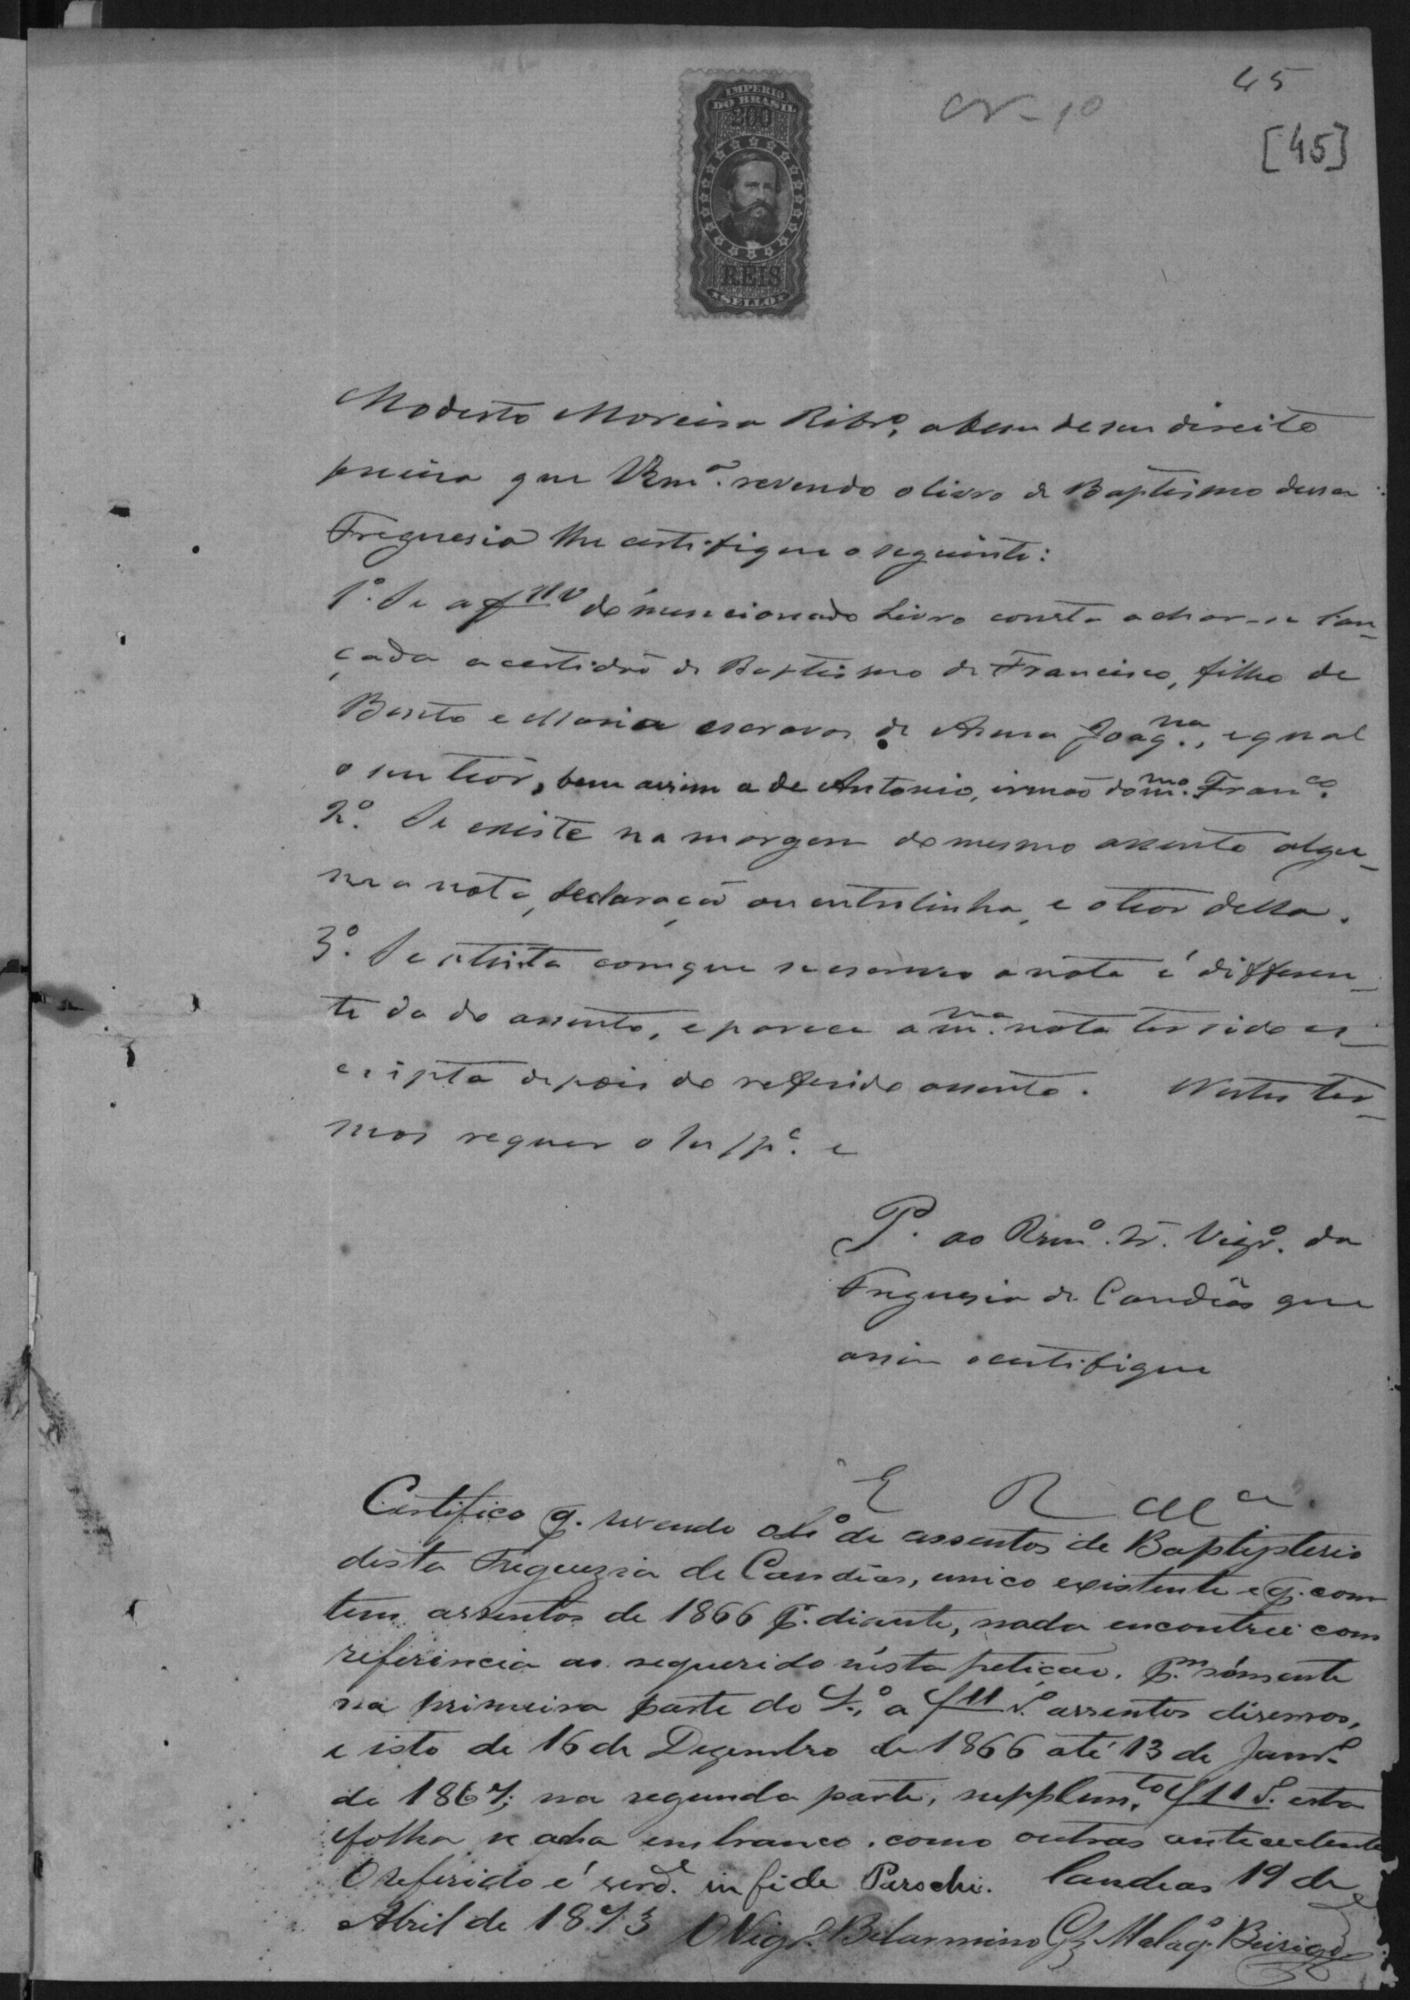 45
N-10
[45]
IMPERIO
DO BRASIL
200
REIS
SELLO
Modesto Moreira Ribrº, a bem de seu direito
precisa que VRmª. revendo o livro de Baptismo dessa
Freguesia lhe certifique o seguinte:
1º. Se a f 11 v do mencionado Livro consta achar-se lan-
çada a certidão de Baptismo de Francisco, filho de
Bento e Maria escravos de Anna Joaqna., e qual
o seu teor, bem assim a de Antonio, irmão do mmo. Franco.
2º. Se existe na margem do mesmo assento algu-
ma nota, declaração ou entrelinha, e o teor della.
3º. Se a tinta com que se escreveo a nota é differen-
te da do assento, e parece a mma. nota ter sido es-
cripta depois do referido assento. Nestes ter-
mos requer o Suppe. e
P. ao Rvmº. Sr. Vigrº. da
Freguesia de Candêas que
assim o certifique
E R Mce.
Certifico q. revendo o Lº de assentos de Baptisterio
desta Freguezia de Candêas, unico existente e q. con
tem assentos de 1866 pª. diante, nada encontrei com
referencia ao requerido nésta petição. Pm. sómente
na primeira parte do Lº. a f 11 vº assentos diversos,
e isto de 16 de Dezembro de 1866 até 13 de Janrº
de 1867; na segunda parte, supplemto. f 11 v. esta
folha se acha em branco, como outras antecedente
O referido é verde. in fide Parochi. Candeas 19 de
Abril de 1873 O Vigrº. Belarmino Glz Malaqº.